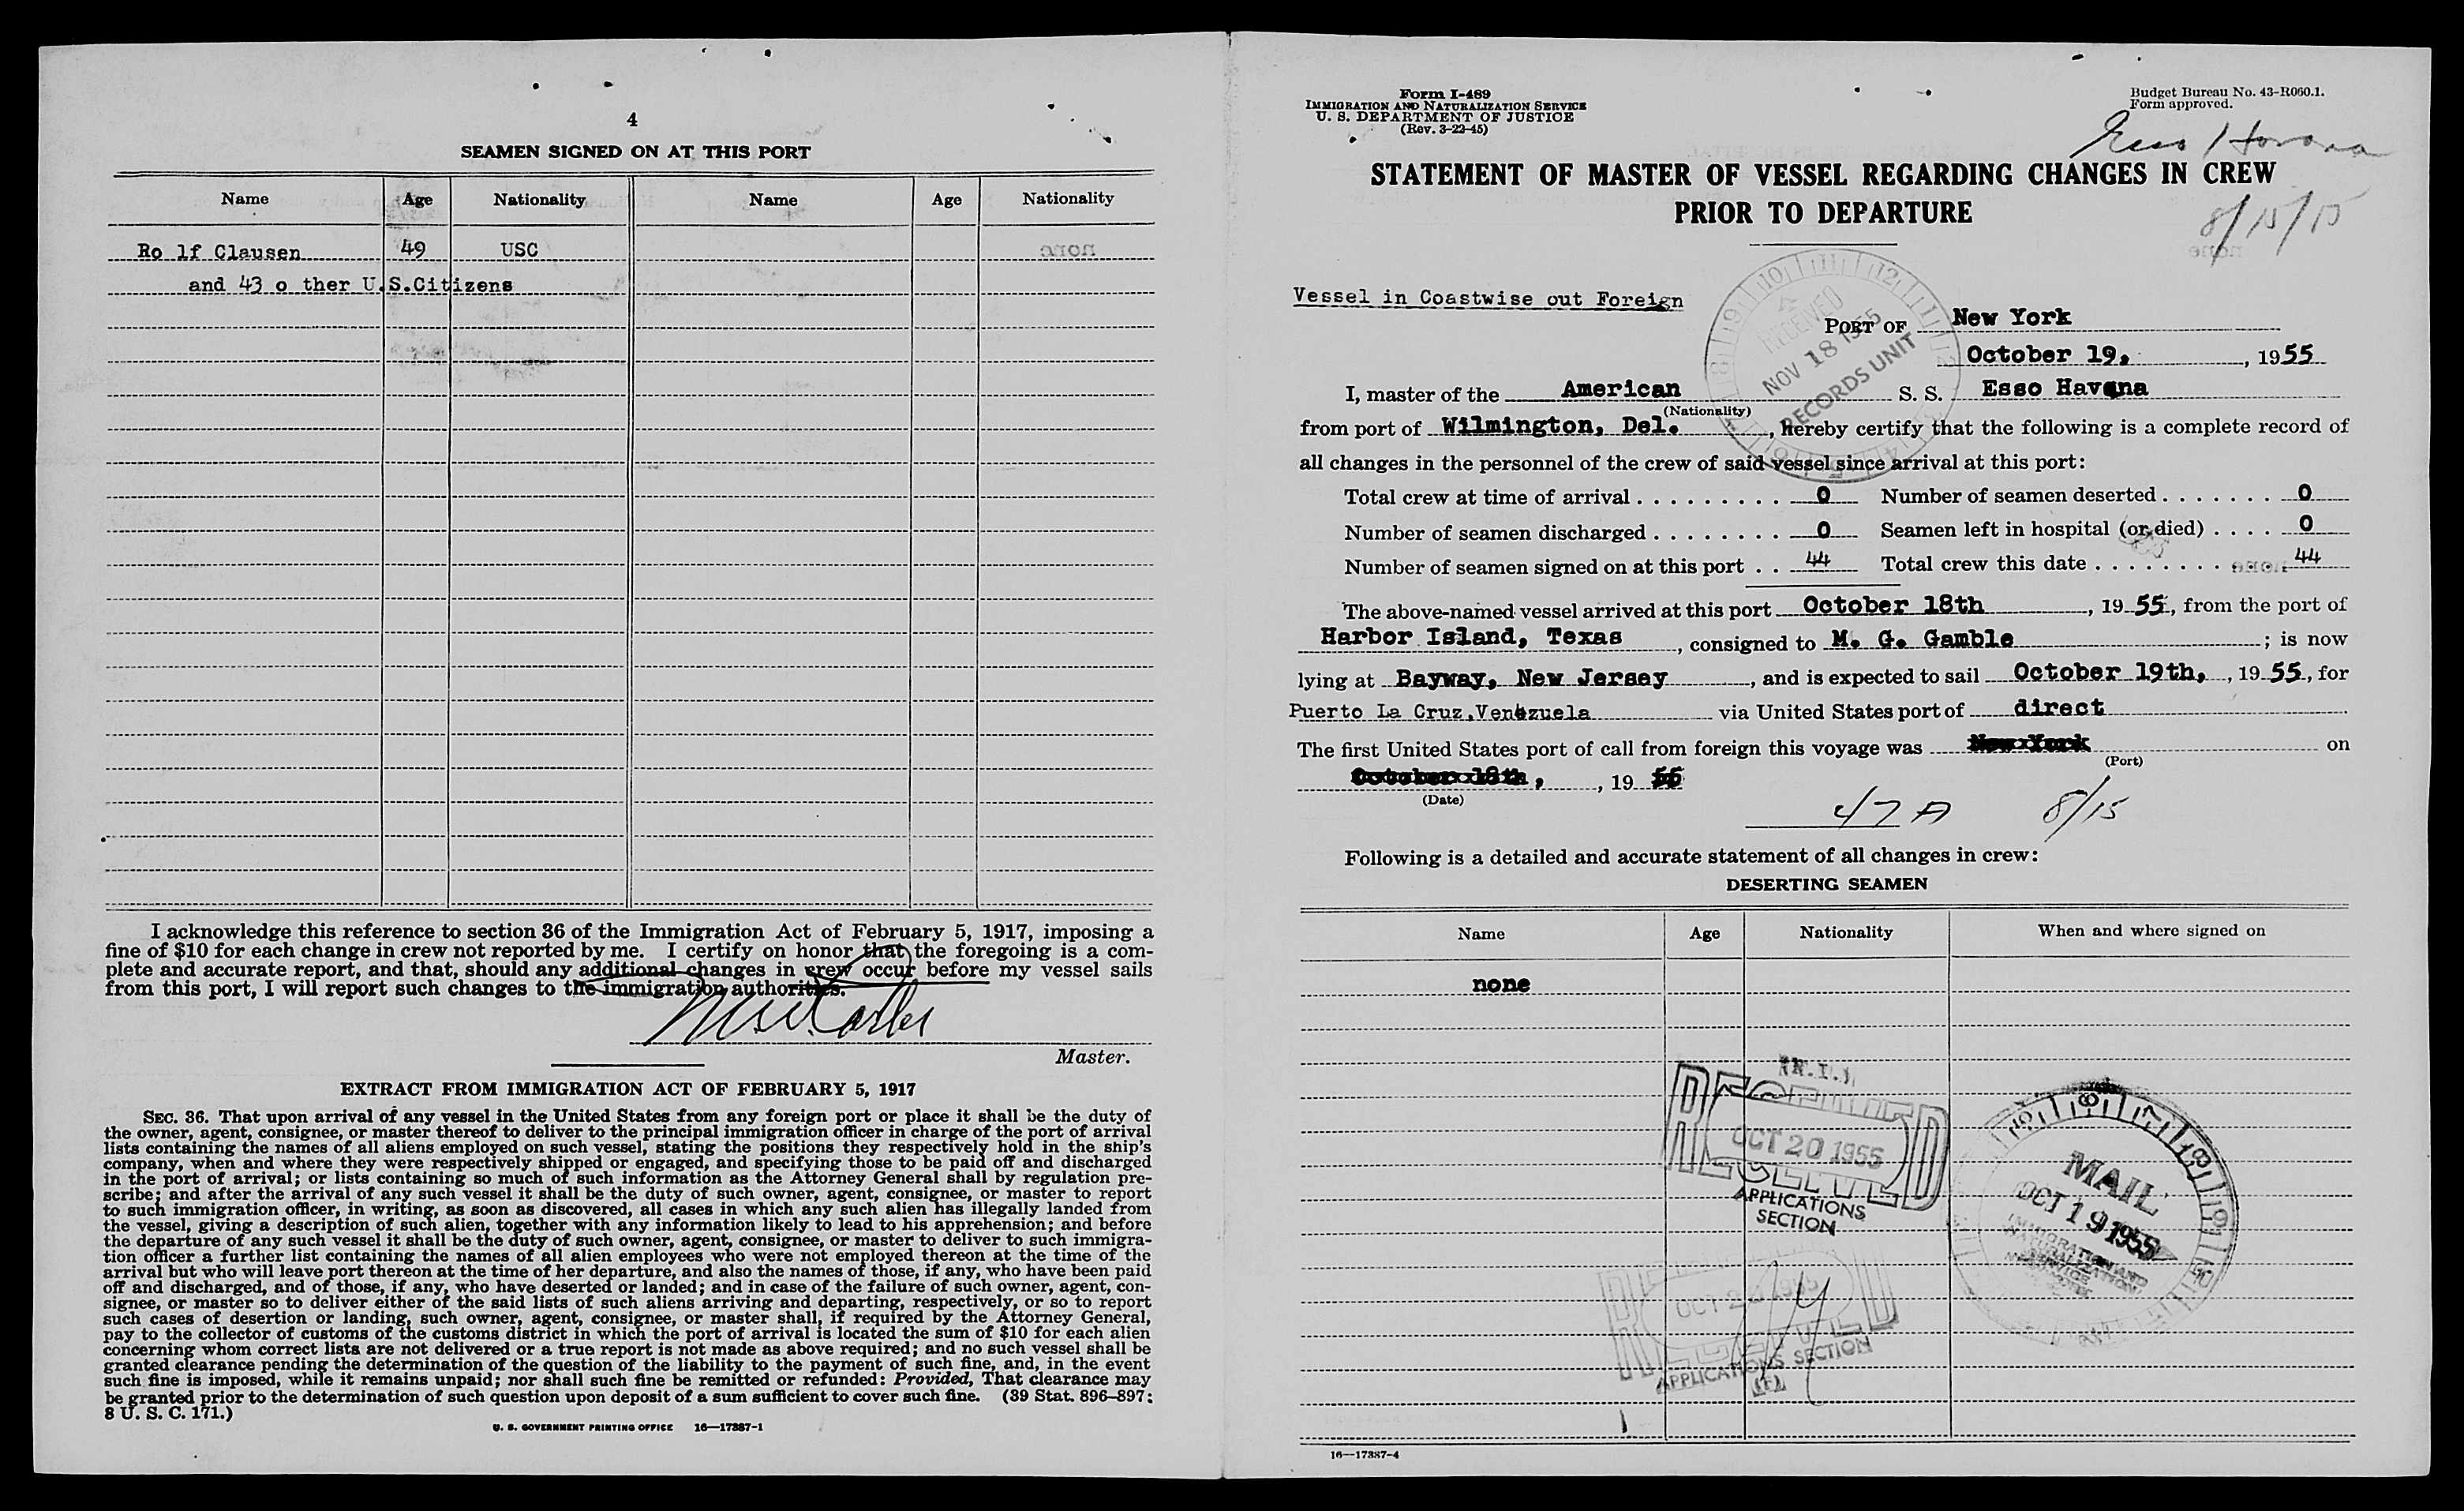 4
SEAMEN SIGNED ON AT THIS PORT
Name Age Nationality Name Age Nationality
Ro lf Clausen 49 USC
and 43 o ther U.S.Citizens
I acknowledge this reference to section 36 of the Immigration Act of February 5, 1917, imposing a
fine of $10 for each change in crew not reported by me. I certify on honor that the foregoing is a com-
plete and accurate report, and that, should any additional changes in crew occur before my vessel sails
from this port, I will report such changes to the immigration authorities.
Master.
EXTRACT FROM IMMIGRATION ACT OF FEBRUARY 5, 1917
SEC. 36. That upon arrival of any vessel in the United States from any foreign port or place it shall be the duty of
the owner, agent, consignee, or master thereof to deliver to the principal immigration officer in charge of the port of arrival
lists containing the names of all aliens employed on such vessel, stating the positions they respectively hold in the ship's
company, when and where they were respectively shipped or engaged, and specifying those to be paid off and discharged
in the port of arrival; or lists containing so much of such information as the Attorney General shall by regulation pre-
scribe; and after the arrival of any such vessel it shall be the duty of such owner, agent, consignee, or master to report
to such immigration officer, in writing, as soon as discovered, all cases in which any such alien has illegally landed from
the vessel, giving a description of such alien, together with any information likely to lead to his apprehension; and before
the departure of any such vessel it shall be the duty of such owner, agent, consignee, or master to deliver to such immigra-
tion officer a further list containing the names of all alien employees who were not employed thereon at the time of the
arrival but who will leave port thereon at the time of her departure, and also the names of those, if any, who have been paid
off and discharged, and of those, if any, who have deserted or landed; and in case of the failure of such owner, agent, con-
signee, or master so to deliver either of the said lists of such aliens arriving and departing, respectively, or so to report
such cases of desertion or landing, such owner, agent, consignee, or master shall, if required by the Attorney General,
pay to the collector of customs of the customs district in which the port of arrival is located the sum of $10 for each alien
concerning whom correct lists are not delivered or a true report is not made as above required; and no such vessel shall be
granted clearance pending the determination of the question of the liability to the payment of such fine, and, in the event
such fine is imposed, while it remains unpaid; nor shall such fine be remitted or refunded: Provided, That clearance may
be granted prior to the determination of such question upon deposit of a sum sufficient to cover such fine. (39 Stat. 896–897;
8 U. S. C. 171.)
U. S. GOVERNMENT PRINTING OFFICE 16—17387-1
Form I-489
IMMIGRATION AND NATURALIZATION SERVICE
U. S. DEPARTMENT OF JUSTICE
(Rev. 3-22-45)
Budget Bureau No. 43-R060.1.
Form approved.
Esso Havana
STATEMENT OF MASTER OF VESSEL REGARDING CHANGES IN CREW
PRIOR TO DEPARTURE
8/15/15
Vessel in Coastwise out Foreign
RECEIVED
NOV 18 1955
RECORDS UNIT
PORT OF New York
October 19, , 1955
I, master of the American S. S. Esso Havana
(Nationality)
from port of Wilmington, Del. , hereby certify that the following is a complete record of
all changes in the personnel of the crew of said vessel since arrival at this port:
Total crew at time of arrival . . . . . . . . . 0 Number of seamen deserted . . . . . . . 0
Number of seamen discharged . . . . . . . . 0 Seamen left in hospital (or died) . . . . 0
Number of seamen signed on at this port . . 44 Total crew this date . . . . . . . . 44
The above-named vessel arrived at this port October 18th , 19 55, from the port of
Harbor Island, Texas , consigned to M. G. Gamble ; is now
lying at Bayway, New Jersey , and is expected to sail October 19th, , 19 55, for
Puerto La Cruz,Venezuela via United States port of direct
The first United States port of call from foreign this voyage was New York on
(Port)
October 18th, , 19 55
(Date)
47 A 8/15
Following is a detailed and accurate statement of all changes in crew:
DESERTING SEAMEN
Name Age Nationality When and where signed on
none
RECEIVED
OCT 20 1955
APPLICATIONS
SECTION
MAIL
OCT 19 1955
IMMIGRATION AND
NATURALIZATION
SERVICE
APPLICATIONS SECTION
16—17387-4